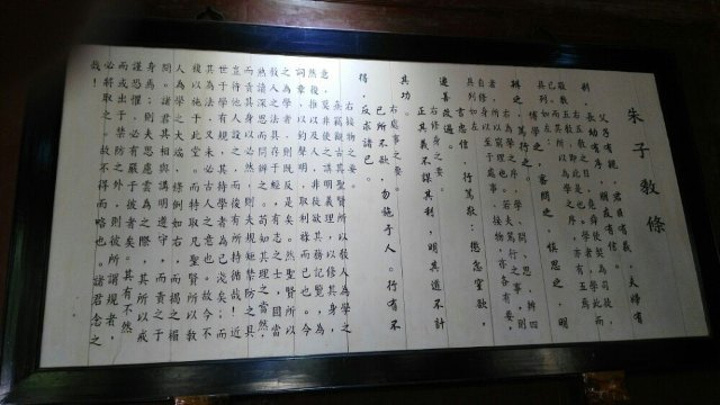 朱子教條
父子有親，君臣有義，夫婦有
別，長幼有序，朋友有信。
右五教之目。堯舜使契為司徒，
敬敷五教，即此是也。學者學此而
已。而其所以為學之序，亦有五焉，
具列如左：
博學之，審問之，慎思之，明
辨之，篤行之。
右為學之序。學、問、思、辨四
者，所以窮理也。若夫篤行之事，則
自修身以至于處事、接物，亦各有要，
具列如左：
言忠信，行篤敬；懲忿窒欲，
遷善改過。
右修身之要。
正其義不謀其利，明其道不計
其功。
右處事之要。
己所不欲，勿施于人。行有不
得，反求諸己。
右接物之要。
熹竊觀古昔聖賢所以教人為學之
意，莫非使之講明義理，以修其身，
然後推以及人，非徒欲其務記覽，為
詞章，以釣聲名，取利祿而已也。今
之為學者，則既反是矣。然聖賢所以
教人之法，具存于經，有志之士，固當
熟讀深思而問辨之。苟知其理之當然，
而責其身以必然，則夫規矩禁防之具，
豈待他人設之，而後有所持循哉！近
世于學有規，其待學者為已淺矣；而
其為法，又未必古人之意也。故今不
復以施于此堂，而特取凡聖賢所以教
人為學之大端，條例如右，而揭之楣
間。諸君其相與講明遵守，而責之于
身焉，則夫思慮云為之際，其所以戒
謹恐懼者，必有嚴于彼者矣。其有不然，
而或出于禁防之外，則彼所謂規者，
必將取之，故不得而略也。諸君念之
哉！